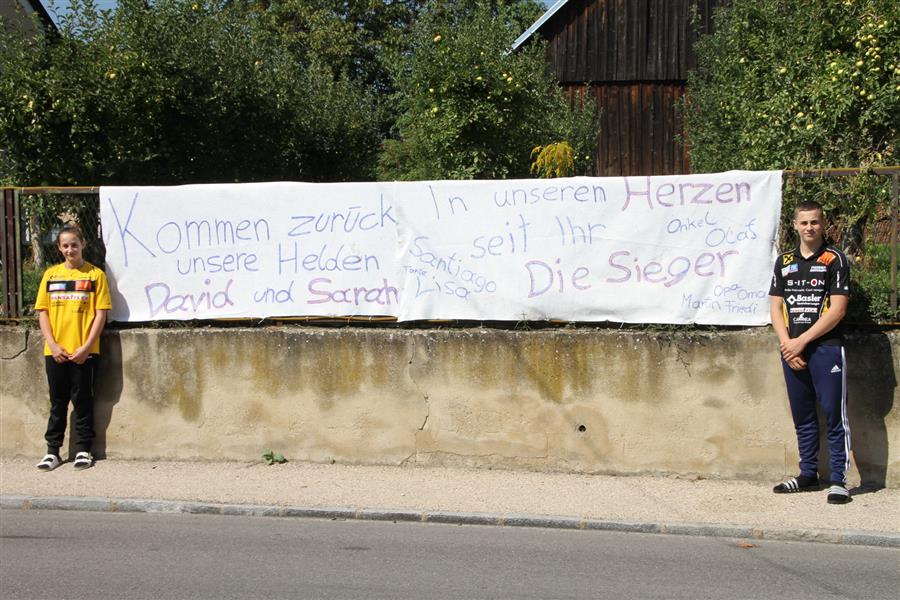 Kommen zurück
unsere Helden
David und Sarah
In unseren Herzen
seit Ihr
Die Sieger
Santiago
Tante
Lisa
Onkel
Olaf
Opa Oma
Martin Friedi
S·IT·ON
Basler